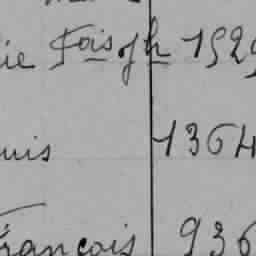 ie Fois Jh 1529
uis 1364
François 936